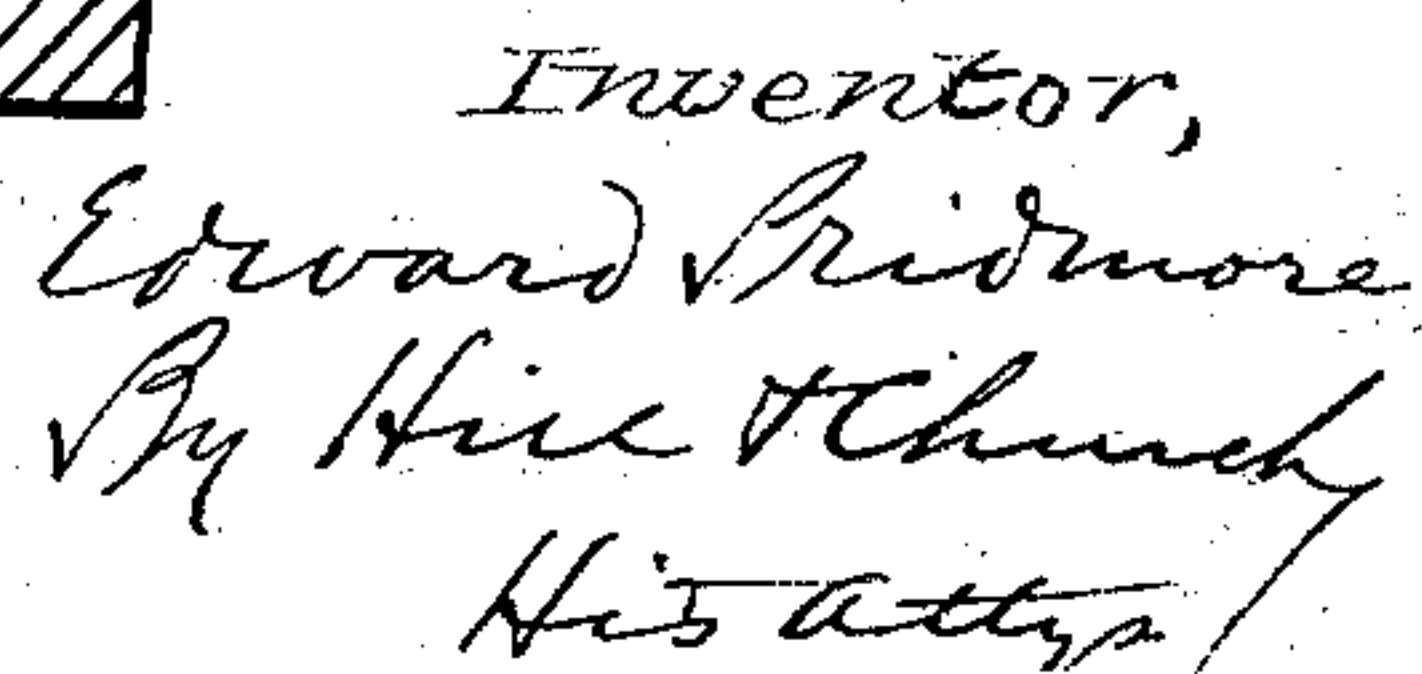 Inventor,
Edward Pridmore
By Hill & Church
His Attys